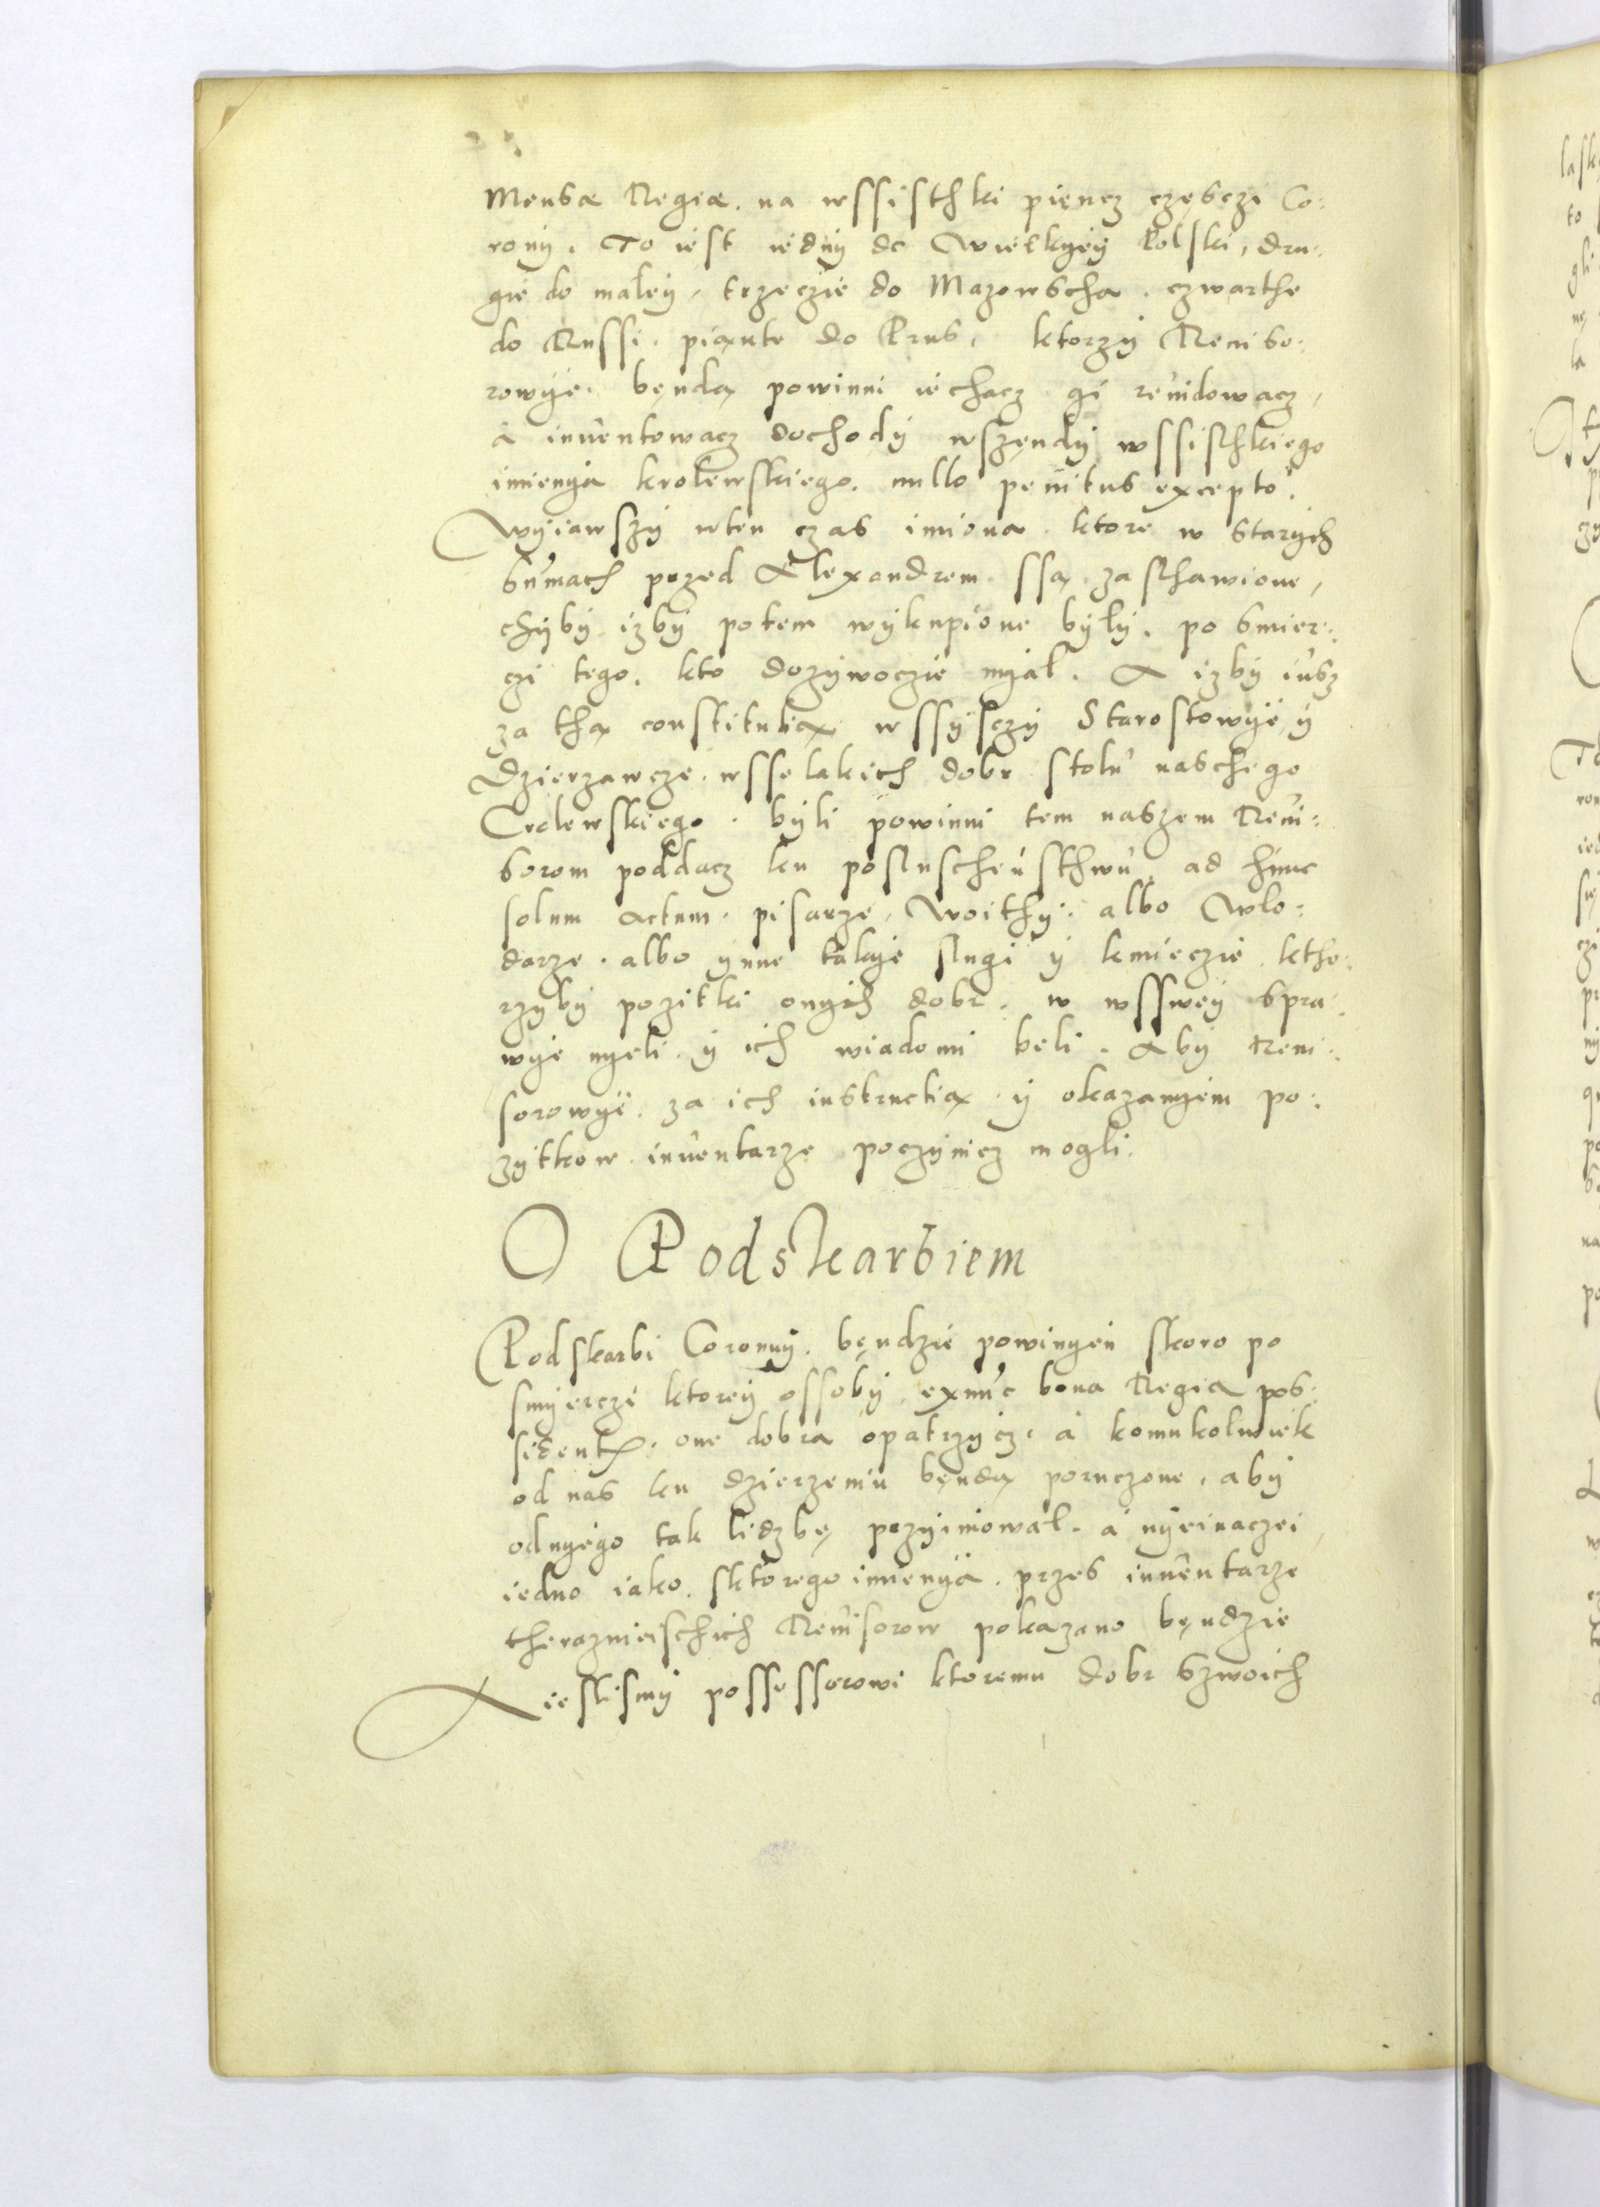 Mensæ Regiæ. na wssisthki pięncz częsczi Co:
rony. To iest iedny do Wielkyey Polski, dru:
gie do maley, trzeczie do Mazowscha. czwarthe
do Russi. piąnte do Prus, ktorzy Reuiso:
rowye. będą powinni iechacz gi reuidowacz,
a inuentowacz dochody wszędy wssisthkiego
imienya krolewskiego. nullo penitus excepto.
Wyiawszy wten czas imiona. ktore w starych
Sumach przed Alexandrem. ssą. zasthawione,
chyby izby potem wykupione były. po smier:
czi tego. kto dozywoczie myał. A izby iusz
za thą constitutią wssysczy Starostowye y
Dzierzawcze. wsselakich dobr stolu naschego
Crolewskiego. byli powinni tem naszem Reui:
sorom poddacz ku posluschenstwu, ad hunc
solum actum. pisarze, Woithy. albo Wlo:
darze. albo ynne takye slugi y kmieczie. ktho:
rzyby pozitki onych dobr. w wsswey spra:
wye myeli. y ich wiadomi beli. Aby Reui:
sorowye. za ich instructią. y okazanyem po:
zytkow. inuentarze poczynicz mogli.
O Podskarbiem
Podskarbi Coronny. będzie powinyen skoro po
smyerczi ktorey ossoby. ex nunc bona Regia pos:
sidentis. one dobra opatrzycz. a komukolwiek
od nas ku dzierzeniu będą poruczone, aby
od nyego tak liczbę przyimowal. a nyeinaczei,
iedno iako. sktorego imienya. przes inuentarze
theraznieischich Reuisorow pokazano będzie
A iesliśmy possessorowi ktoremu dobr Szwoich